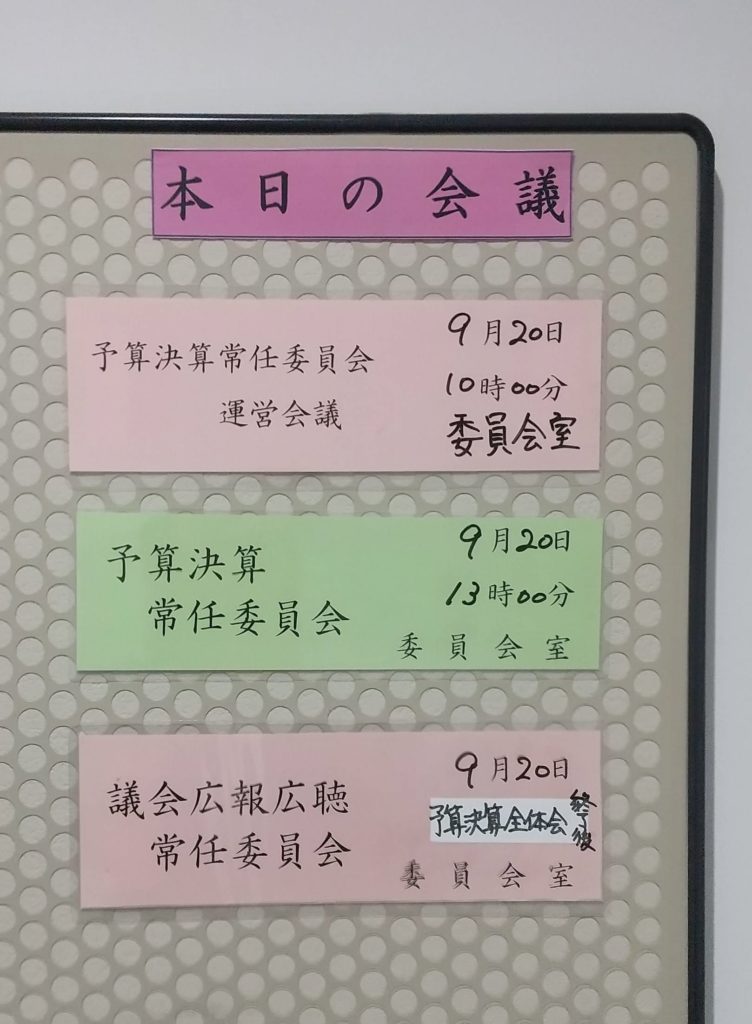 本日の会議
予算決算常任委員会
運営会議
9月20日
10時00分
委員会室
予算決算
常任委員会
9月20日
13時00分
委員会室
議会広報広聴
常任委員会
9月20日
予算決算全体会終了後
委員会室